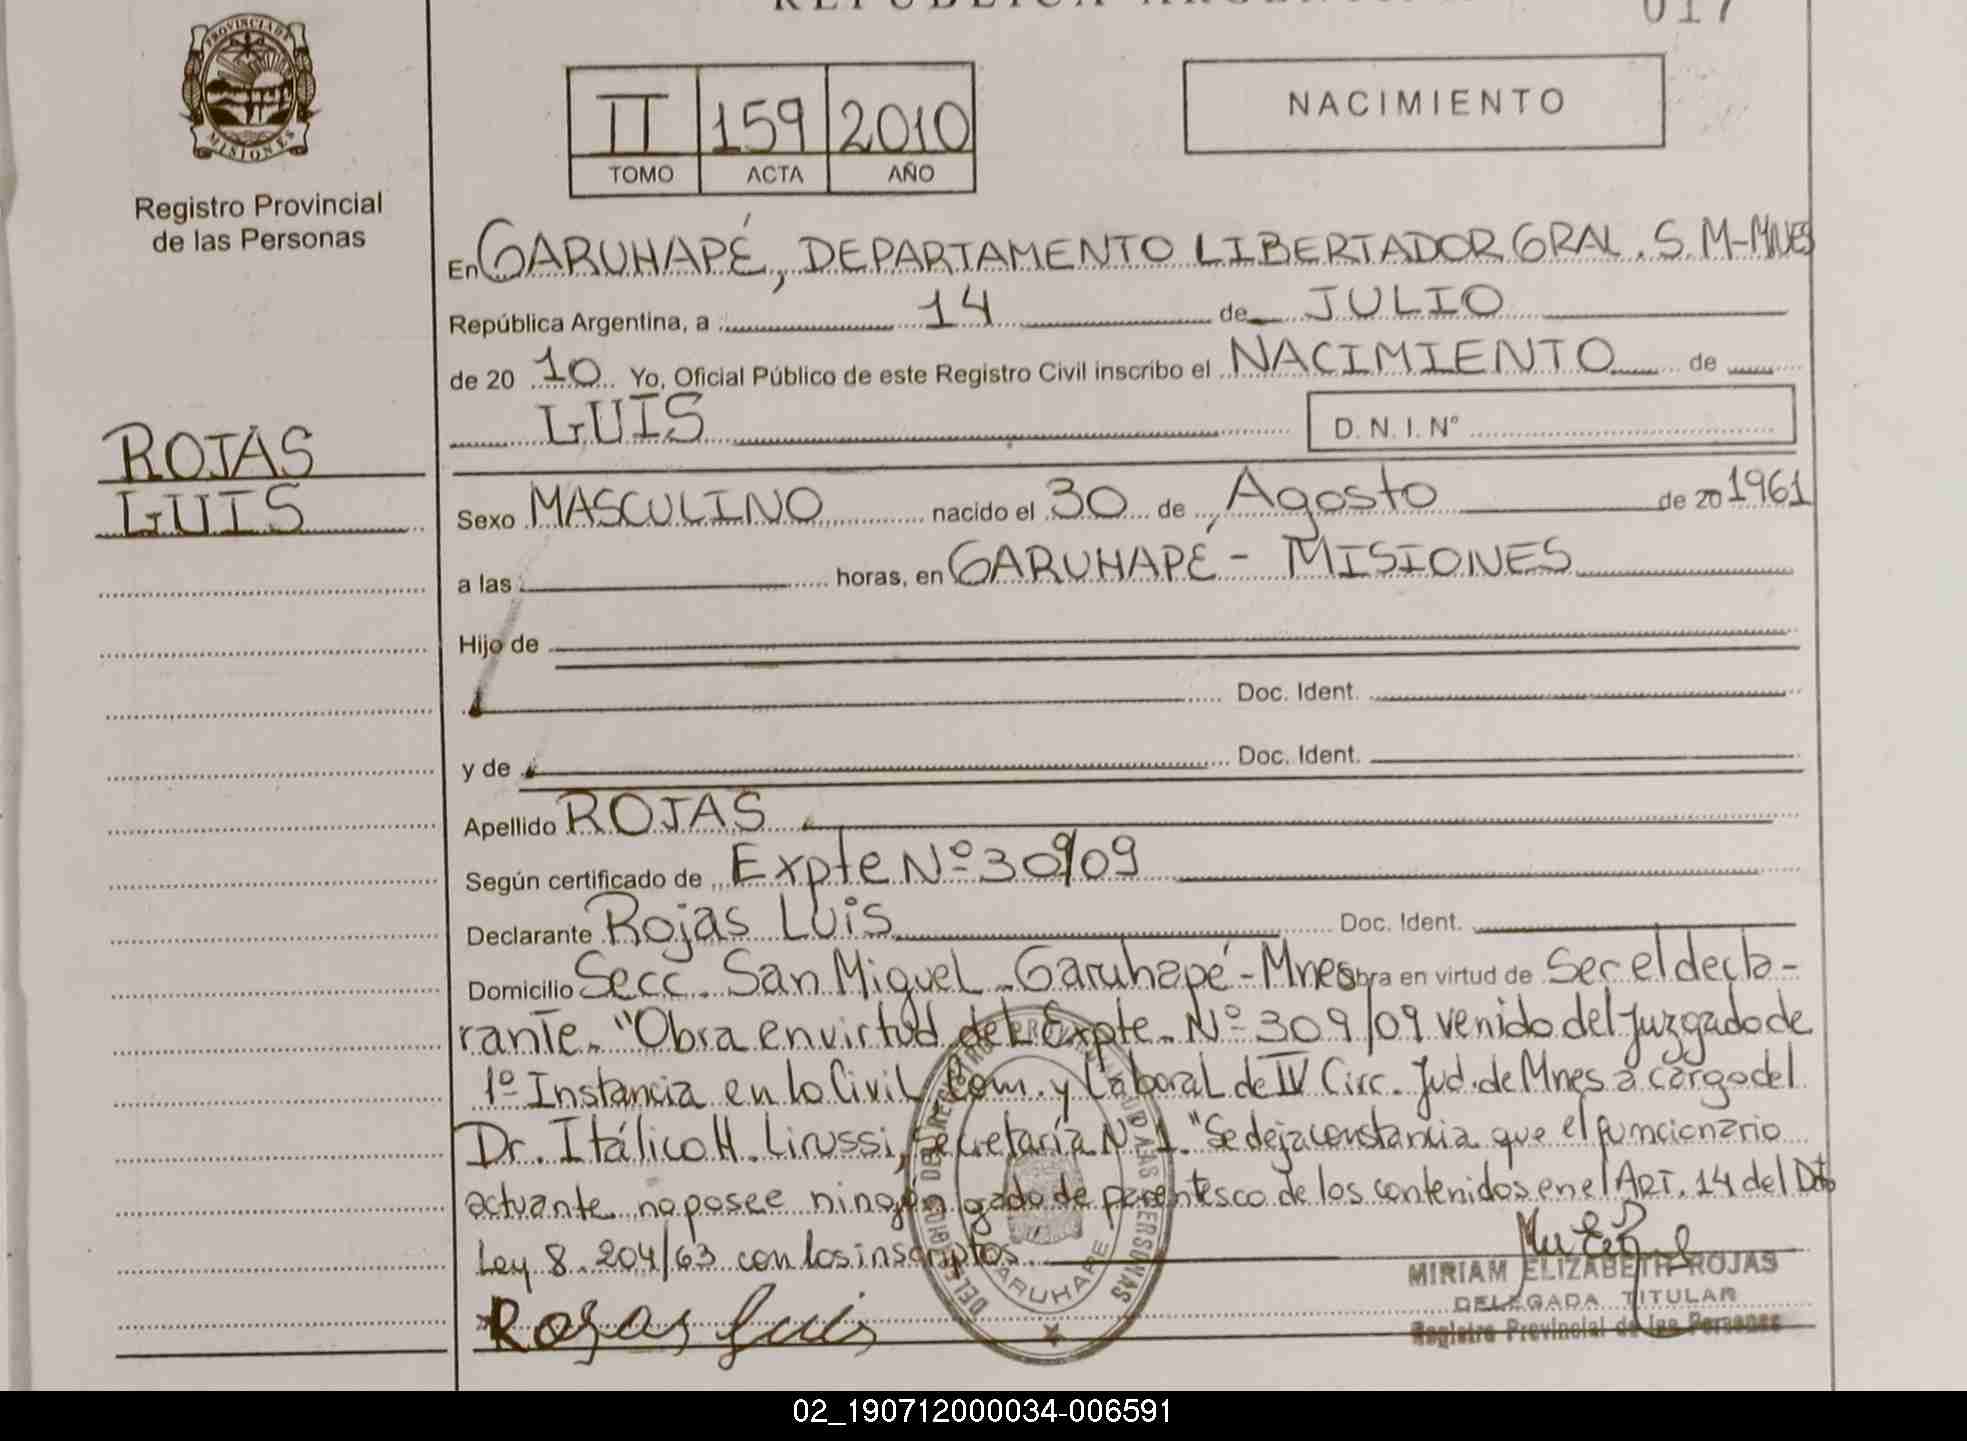 REPÚBLICA ARGENTINA
017
PROVINCIA DE
MISIONES
Registro Provincial
de las Personas
II 159 2010
TOMO ACTA AÑO
NACIMIENTO
En GARUHAPÉ, DEPARTAMENTO LIBERTADOR GRAL. S. M-MNES
República Argentina, a 14 de JULIO
de 20 10 Yo, Oficial Público de este Registro Civil inscribo el NACIMIENTO de
LUIS D. N. I. Nº
ROJAS
LUIS
Sexo MASCULINO nacido el 30 de Agosto de 20 1961
a las horas, en GARUHAPÉ - MISIONES
Hijo de
Doc. Ident.
y de Doc. Ident.
Apellido ROJAS
Según certificado de Expte Nº 309/09
Declarante Rojas Luis Doc. Ident.
Domicilio Secc. San Miguel - Garuhapé - Mnes obra en virtud de Ser el decla-
rante. "Obra en virtud del Expte. Nº 309/09 venido del Juzgado de
1º Instancia en lo Civil, Com. y Laboral de IV Circ. Jud. de Mnes a cargo del
Dr. Itálico H. Lirussi, Secretaría Nº 1. "Se deja constancia que el funcionario
actuante no posee ningún grado de parentesco de los contenidos en el ART. 14 del Dto
Ley 8.204/63 con los inscriptos.
GARUHAPE
MIRIAM ELIZABETH ROJAS
DELEGADA TITULAR
Registro Provincial de las Personas
Rojas Luis
02_190712000034-006591